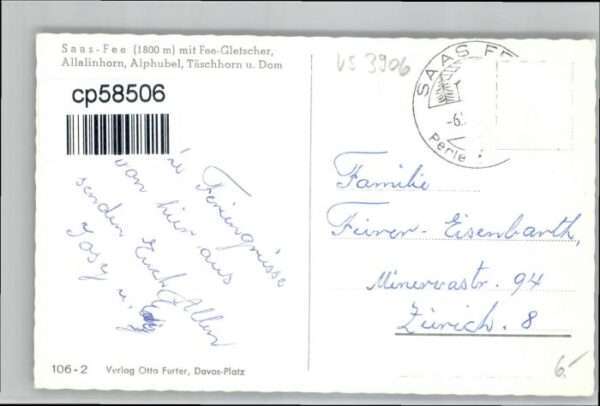 Saas-Fee (1800 m) mit Fee-Gletscher,
Allalinhorn, Alphubel, Täschhorn u. Dom
cp58506
VS 3906
SAAS FE
-6.
Perle
Feriengrüsse
von hier aus
senden Euch Allen
Josy u.
Familie
Feirer-Eisenbarth,
Minervastr. 94
Zürich. 8
106-2 Verlag Otto Furter, Davos-Platz
6.-